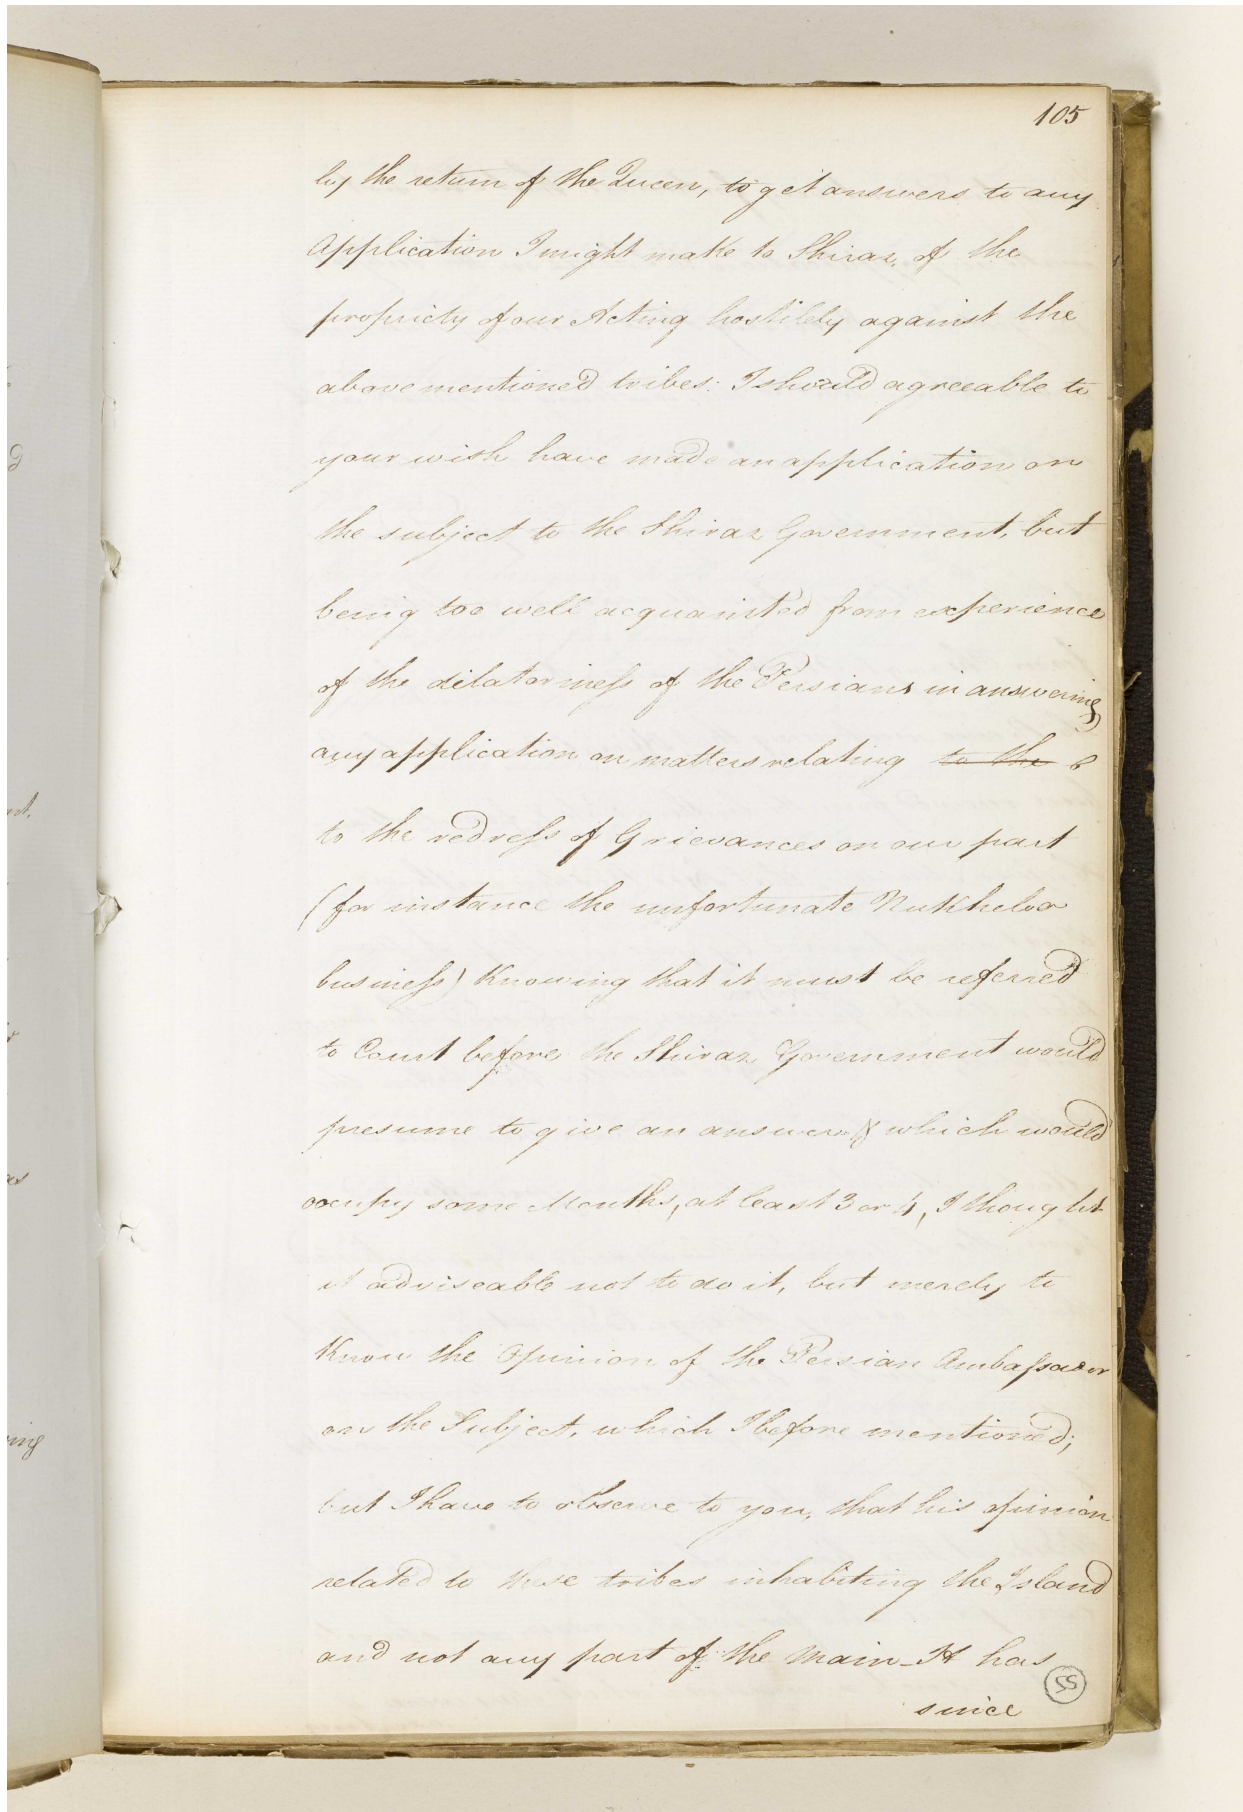 105
by the return of the Queen, to get answers to any
Application I might make to Shiraz, of the
propriety of our Acting hostilely against the
above mentioned tribes: I should agreeable to
your wish have made an application on
the subject to the Shiraz Government, but
being too well acquainted from experience
of the dilatoriness of the Persians in answering
any application on matters relating to the
to the redress of Grievances on our part
(for instance the unfortunate Nukheloo
business) Knowing that it must be referred
to Court before the Shiraz Government would
presume to give an answer & which would
occupy some Months, at least 3 or 4, I thought
it adviseable not to do it, but merely to
Know the Opinion of the Persian Ambassador
on the Subject, which I before mentioned;
but I have to observe to you, that his opinion
related to these tribes inhabiting the Island
and not any part of the Main_ It has
55
since